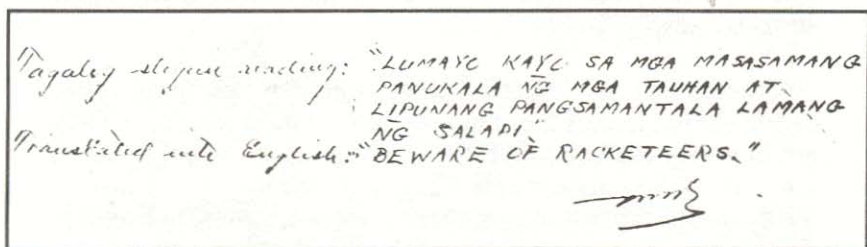 "Tagalog slogan reading: "LUMAYO KAYO SA MGA MASASAMANG
PANUKALA NG MGA TAUHAN AT
LIPUNANG PANGSAMANTALA LAMANG
NG SALAPI."
Translated into English: "BEWARE OF RACKETEERS."